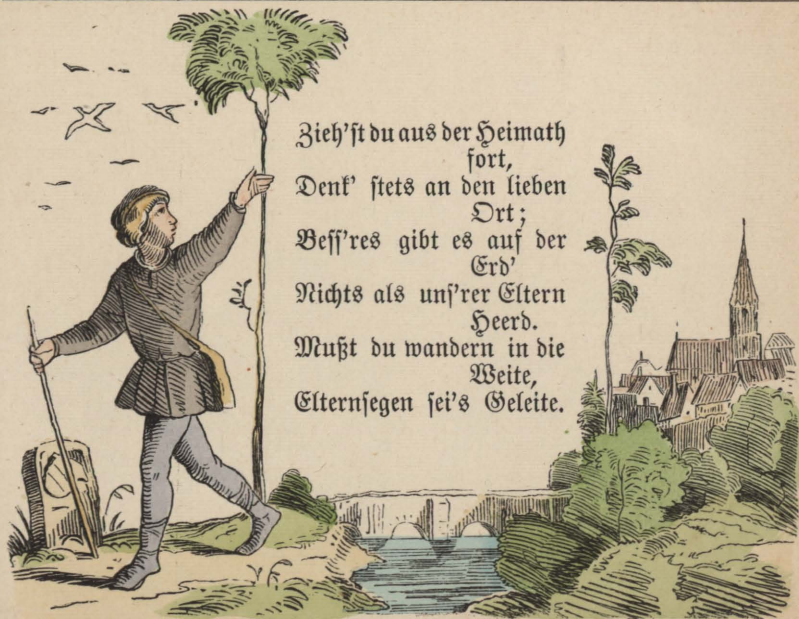 Zieh'st du aus der Heimath
fort,
Denk' stets an den lieben
Ort;
Bess'res gibt es auf der
Erd'
Nichts als uns'rer Eltern
Heerd.
Mußt du wandern in die
Weite,
Elternsegen sei's Geleite.